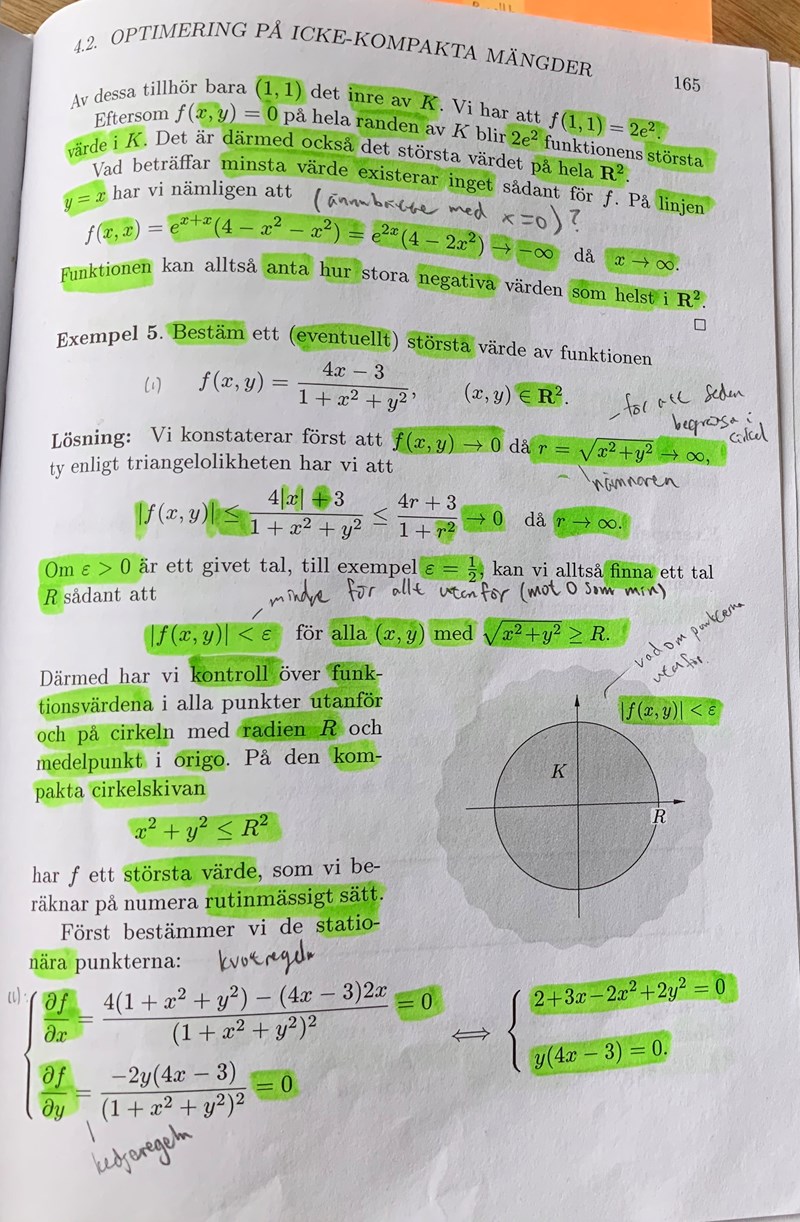 4.2. OPTIMERING PÅ ICKE-KOMPAKTA MÄNGDER
165
Av dessa tillhör bara (1, 1) det inre av K. Vi har att f(1, 1) = 2e².
Eftersom f(x, y) = 0 på hela randen av K blir 2e² funktionens största
värde i K. Det är därmed också det största värdet på hela R².
Vad beträffar minsta värde existerar inget sådant för f. På linjen
y = x har vi nämligen att
med x=0)?
f(x, x) = eˣ⁺ˣ(4 − x² − x²) = e²ˣ(4 − 2x²) → −∞ då x → ∞.
Funktionen kan alltså anta hur stora negativa värden som helst i R².
□
Exempel 5. Bestäm ett (eventuellt) största värde av funktionen
(1) f(x, y) = (4x − 3)/(1 + x² + y²), (x, y) ∈ R².
för att sedan
begränsa i
cirkel
Lösning: Vi konstaterar först att f(x, y) → 0 då r = √(x²+y²) → ∞,
ty enligt triangelolikheten har vi att
nämnaren
|f(x, y)| ≤ (4|x| + 3)/(1 + x² + y²) ≤ (4r + 3)/(1 + r²) → 0 då r → ∞.
Om ε > 0 är ett givet tal, till exempel ε = ½, kan vi alltså finna ett tal
R sådant att
mindre för allt utanför (mot 0 som min)
|f(x, y)| < ε för alla (x, y) med √(x²+y²) ≥ R.
vad om punkterna
utanför.
Därmed har vi kontroll över funk-
tionsvärdena i alla punkter utanför
och på cirkeln med radien R och
medelpunkt i origo. På den kom-
pakta cirkelskivan
|f(x, y)| < ε
K
R
x² + y² ≤ R²
har f ett största värde, som vi be-
räknar på numera rutinmässigt sätt.
Först bestämmer vi de statio-
nära punkterna:
kvotregeln
(1):
∂f/∂x = (4(1 + x² + y²) − (4x − 3)2x)/(1 + x² + y²)² = 0
∂f/∂y = −2y(4x − 3)/(1 + x² + y²)² = 0
⟺
2+3x−2x²+2y² = 0
y(4x − 3) = 0.
kedjeregeln